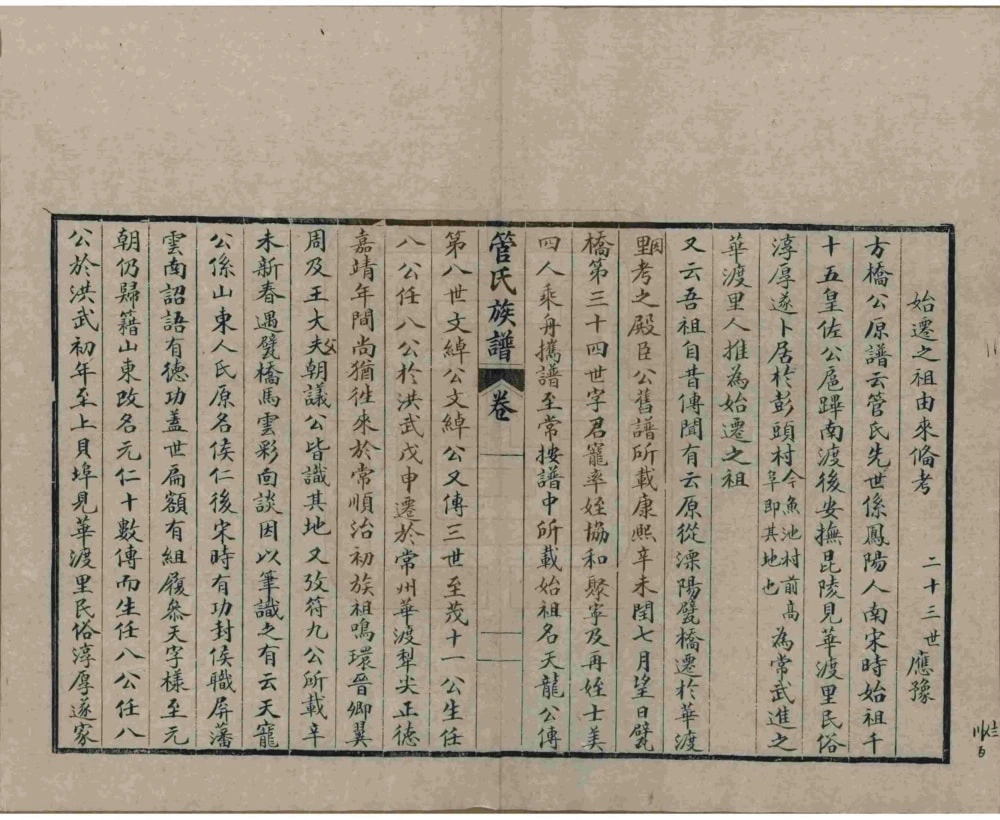 始遷之祖由來俻考　二十三世應豫
方橋公原譜云管氏先世係鳳陽人南宋時始祖千
十五皇佐公扈蹕南渡後安撫毘陵見華渡里民俗
淳厚遂卜居於彭頭村今魚池村前高阜即其地也為常武進之
華渡里人推為始遷之祖
又云吾祖自昔傳聞有云原從溧陽甓橋遷於華渡
里因考之殿臣公舊譜所載康熙辛未閏七月望日甓
橋第三十四世字君寵率姪協和聚寧及再姪士美
四人乘舟攜譜至常按譜中所載始祖名天龍公傳
管氏族譜　卷
第八世文綽公文綽公又傳三世至茂十一公生任
八公任八公於洪武戊申遷於常州華渡犁尖正德
嘉靖年間尚猶徃來於常順治初族祖鳴環晉卿翼
周及王大父夫朝議公皆識其地又攷符九公所載辛
未新春遇甓橋馬雲彩向談因以筆識之有云天寵
公係山東人氏原名侯仁後宋時有功封侯職屏藩
雲南詔語有德功盖世扁額有組履叅天字樣至元
朝仍歸籍山東改名元仁十數傳而生任八公任八
公於洪武初年至上貝埠見華渡里民俗淳厚遂家